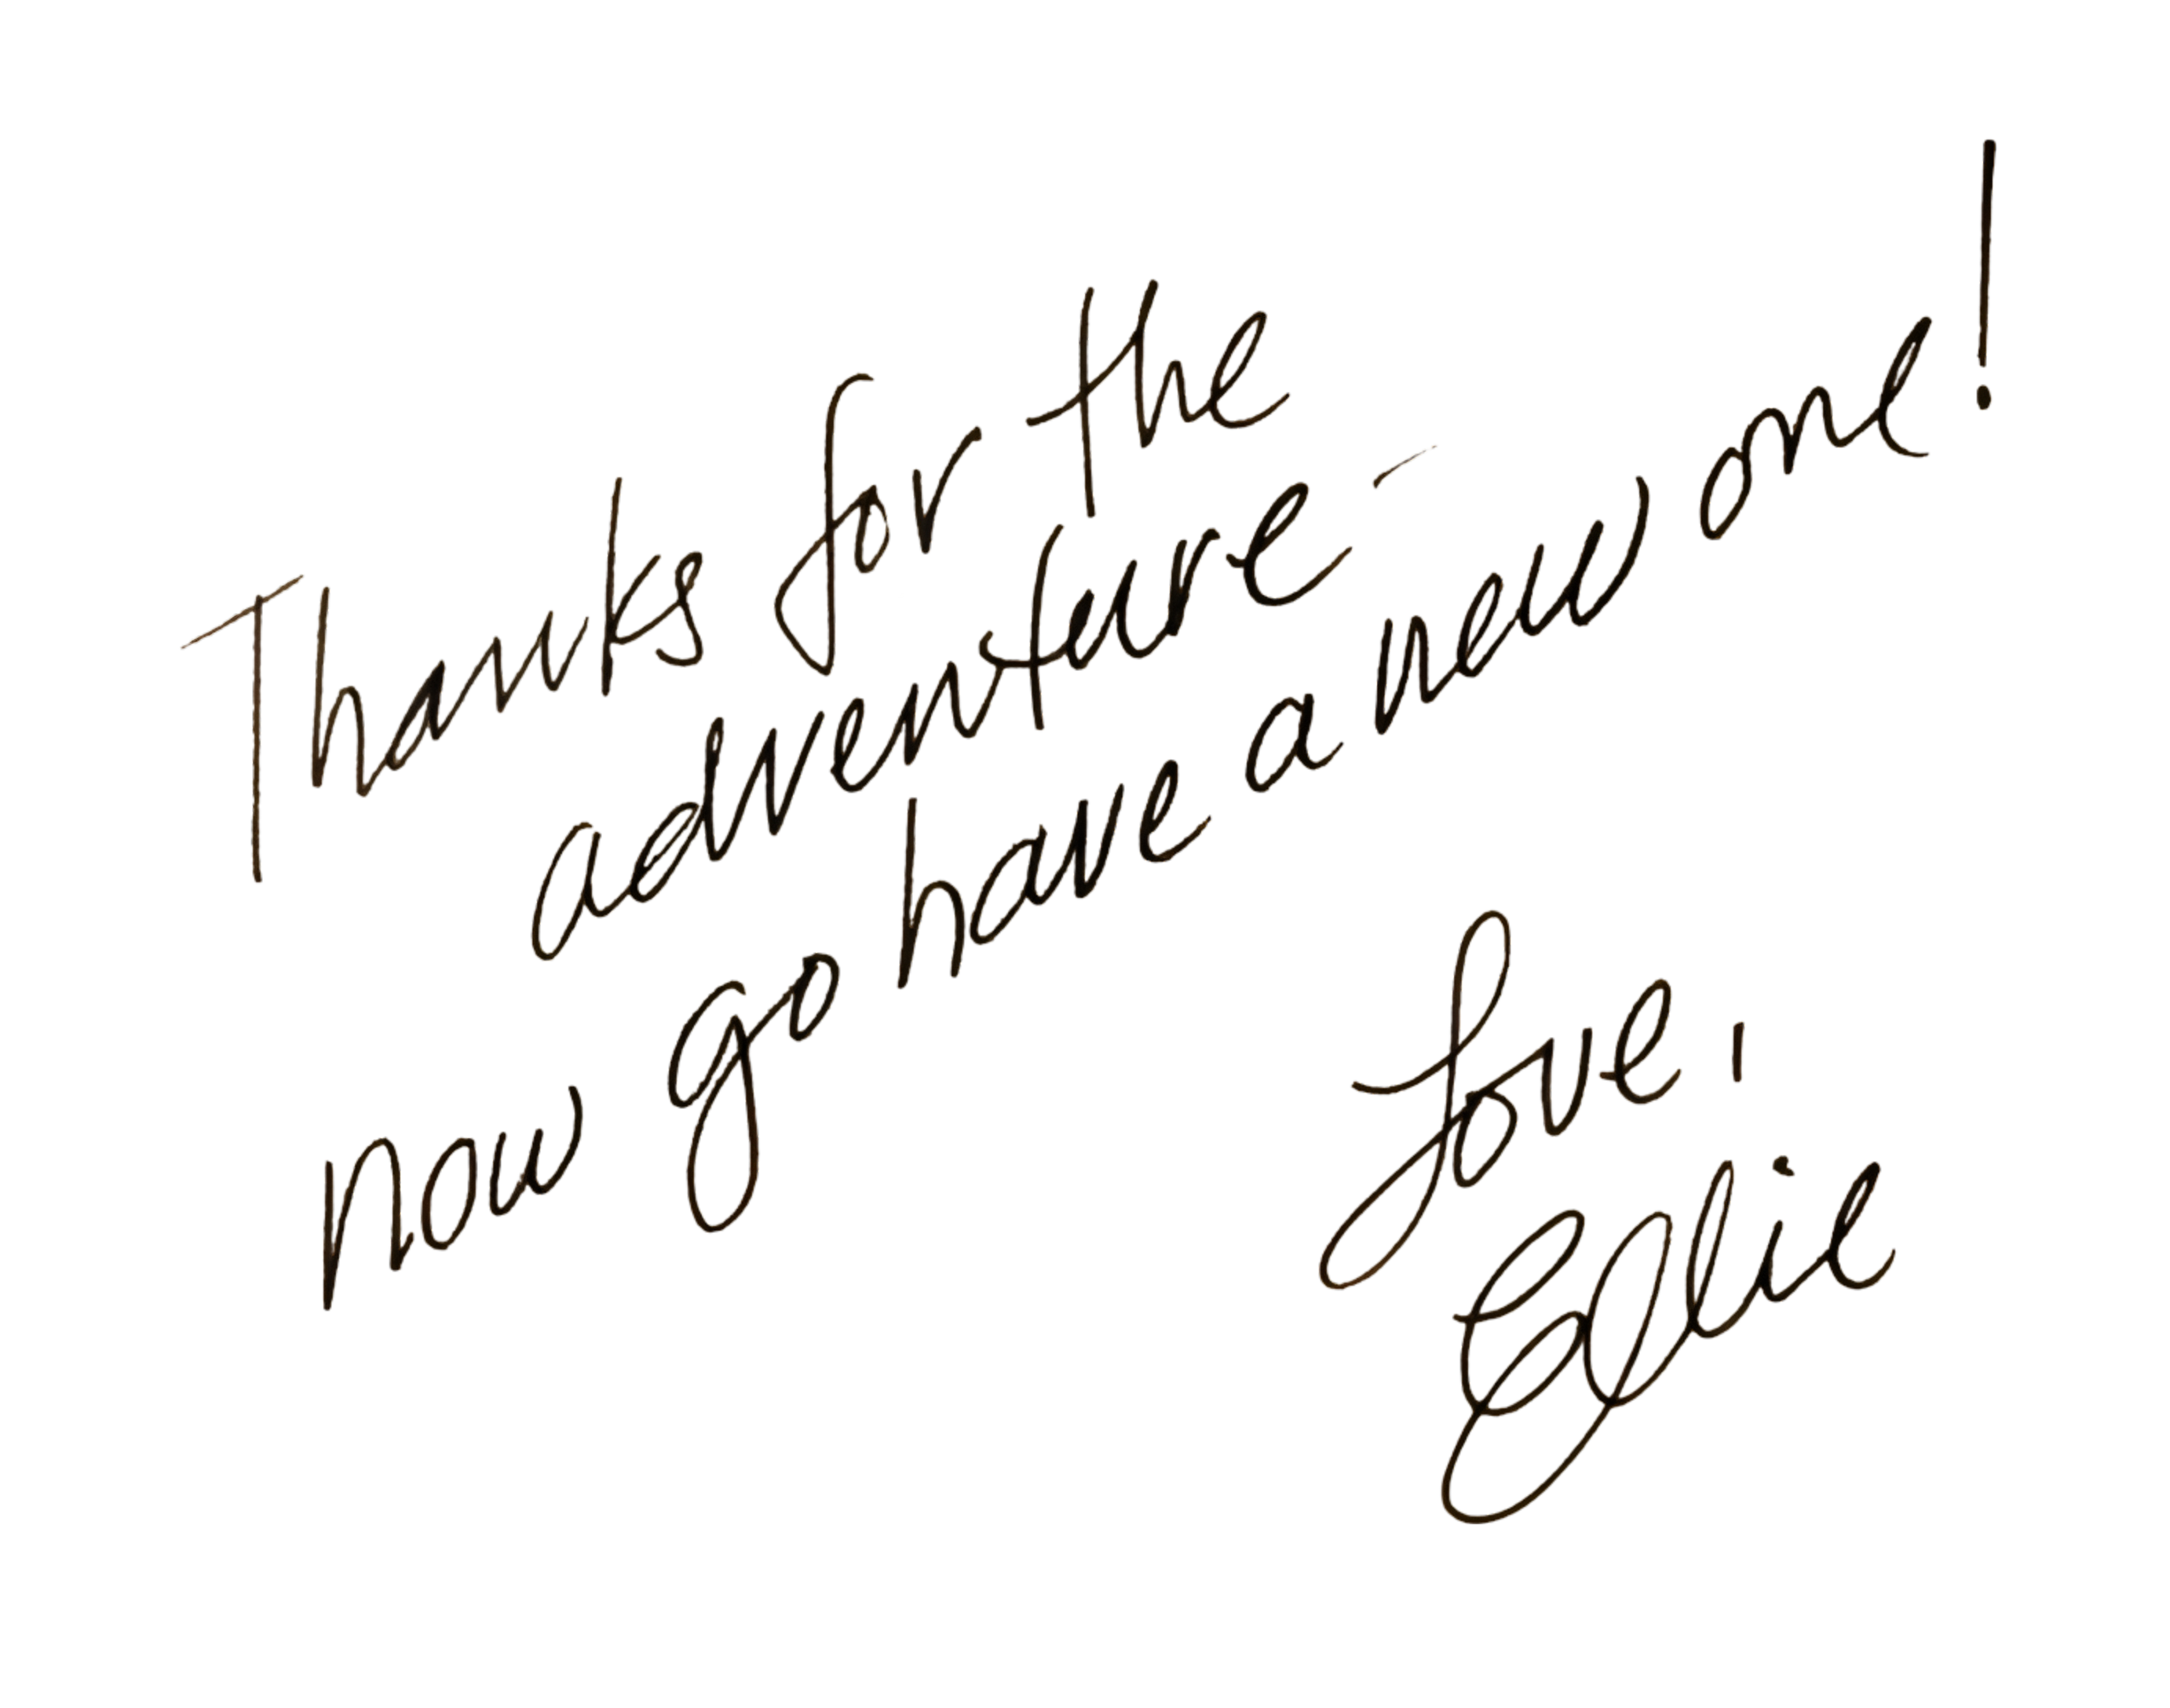 Thanks for the
adventure -
now go have a new one!
Love,
Ellie